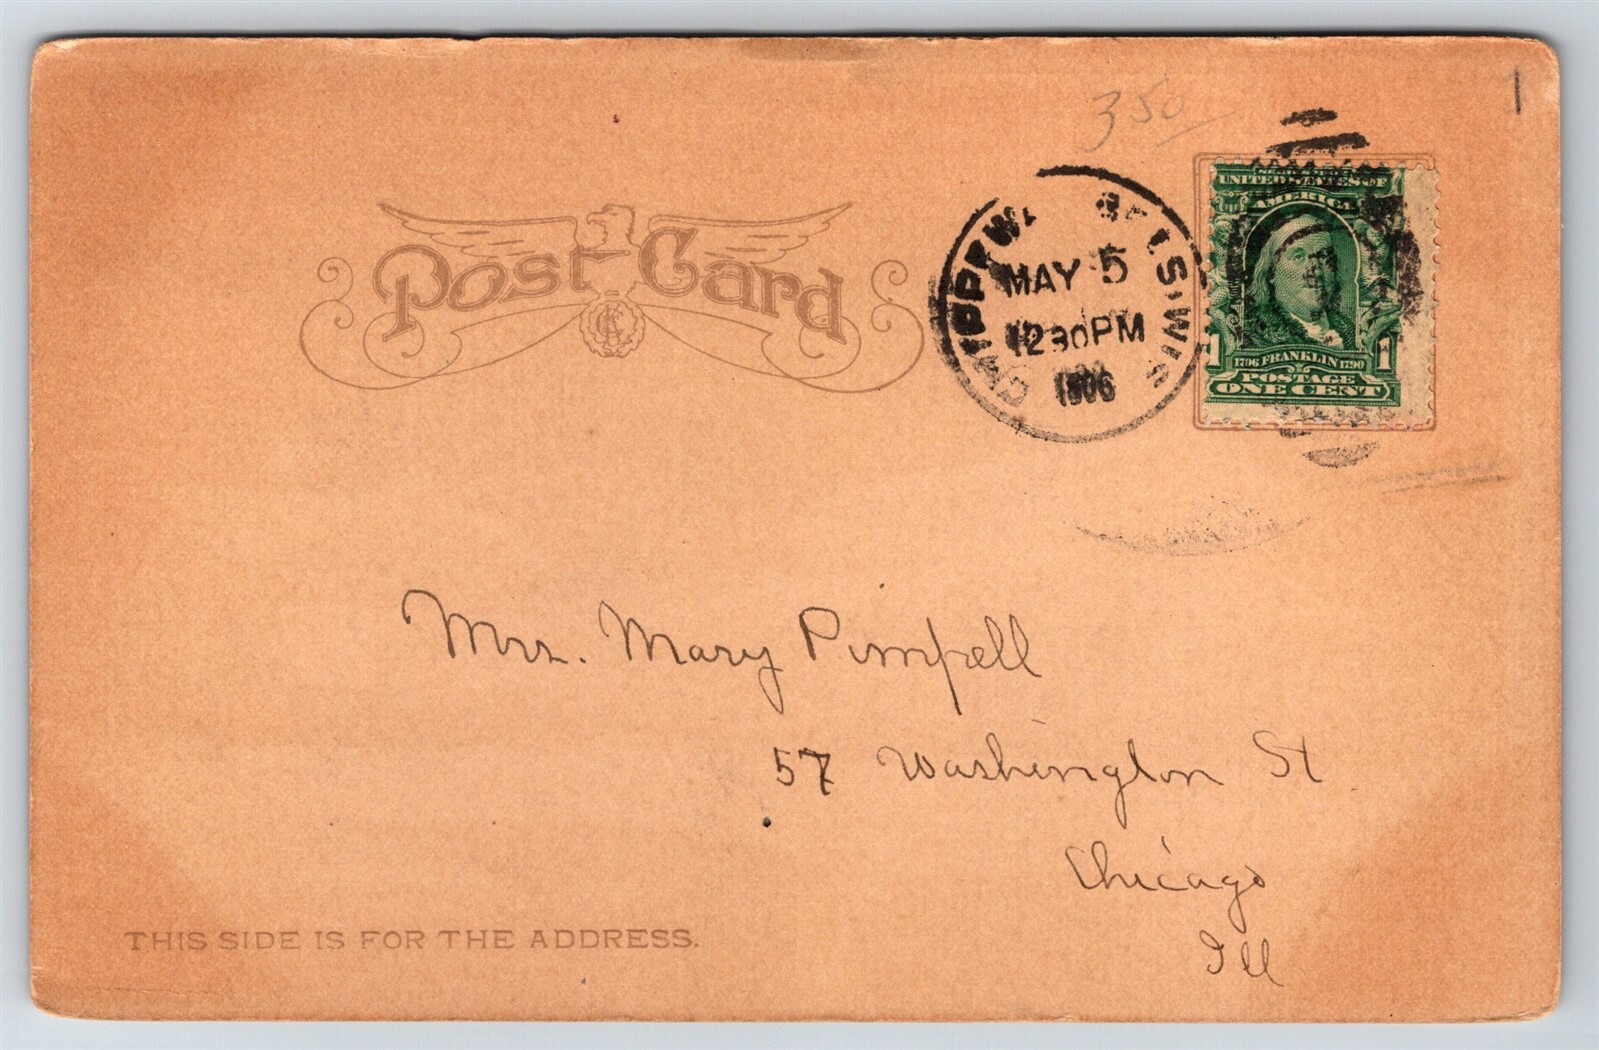 3 50
1
Post Card
CHIPPEWA FALLS. WIS.
MAY 5
1230PM
1906
UNITED STATES OF
AMERICA
1 1
1706 FRANKLIN 1790
POSTAGE
ONE CENT
Mrs. Mary Pimpell
57 Washington St
Chicago
Ill
THIS SIDE IS FOR THE ADDRESS.